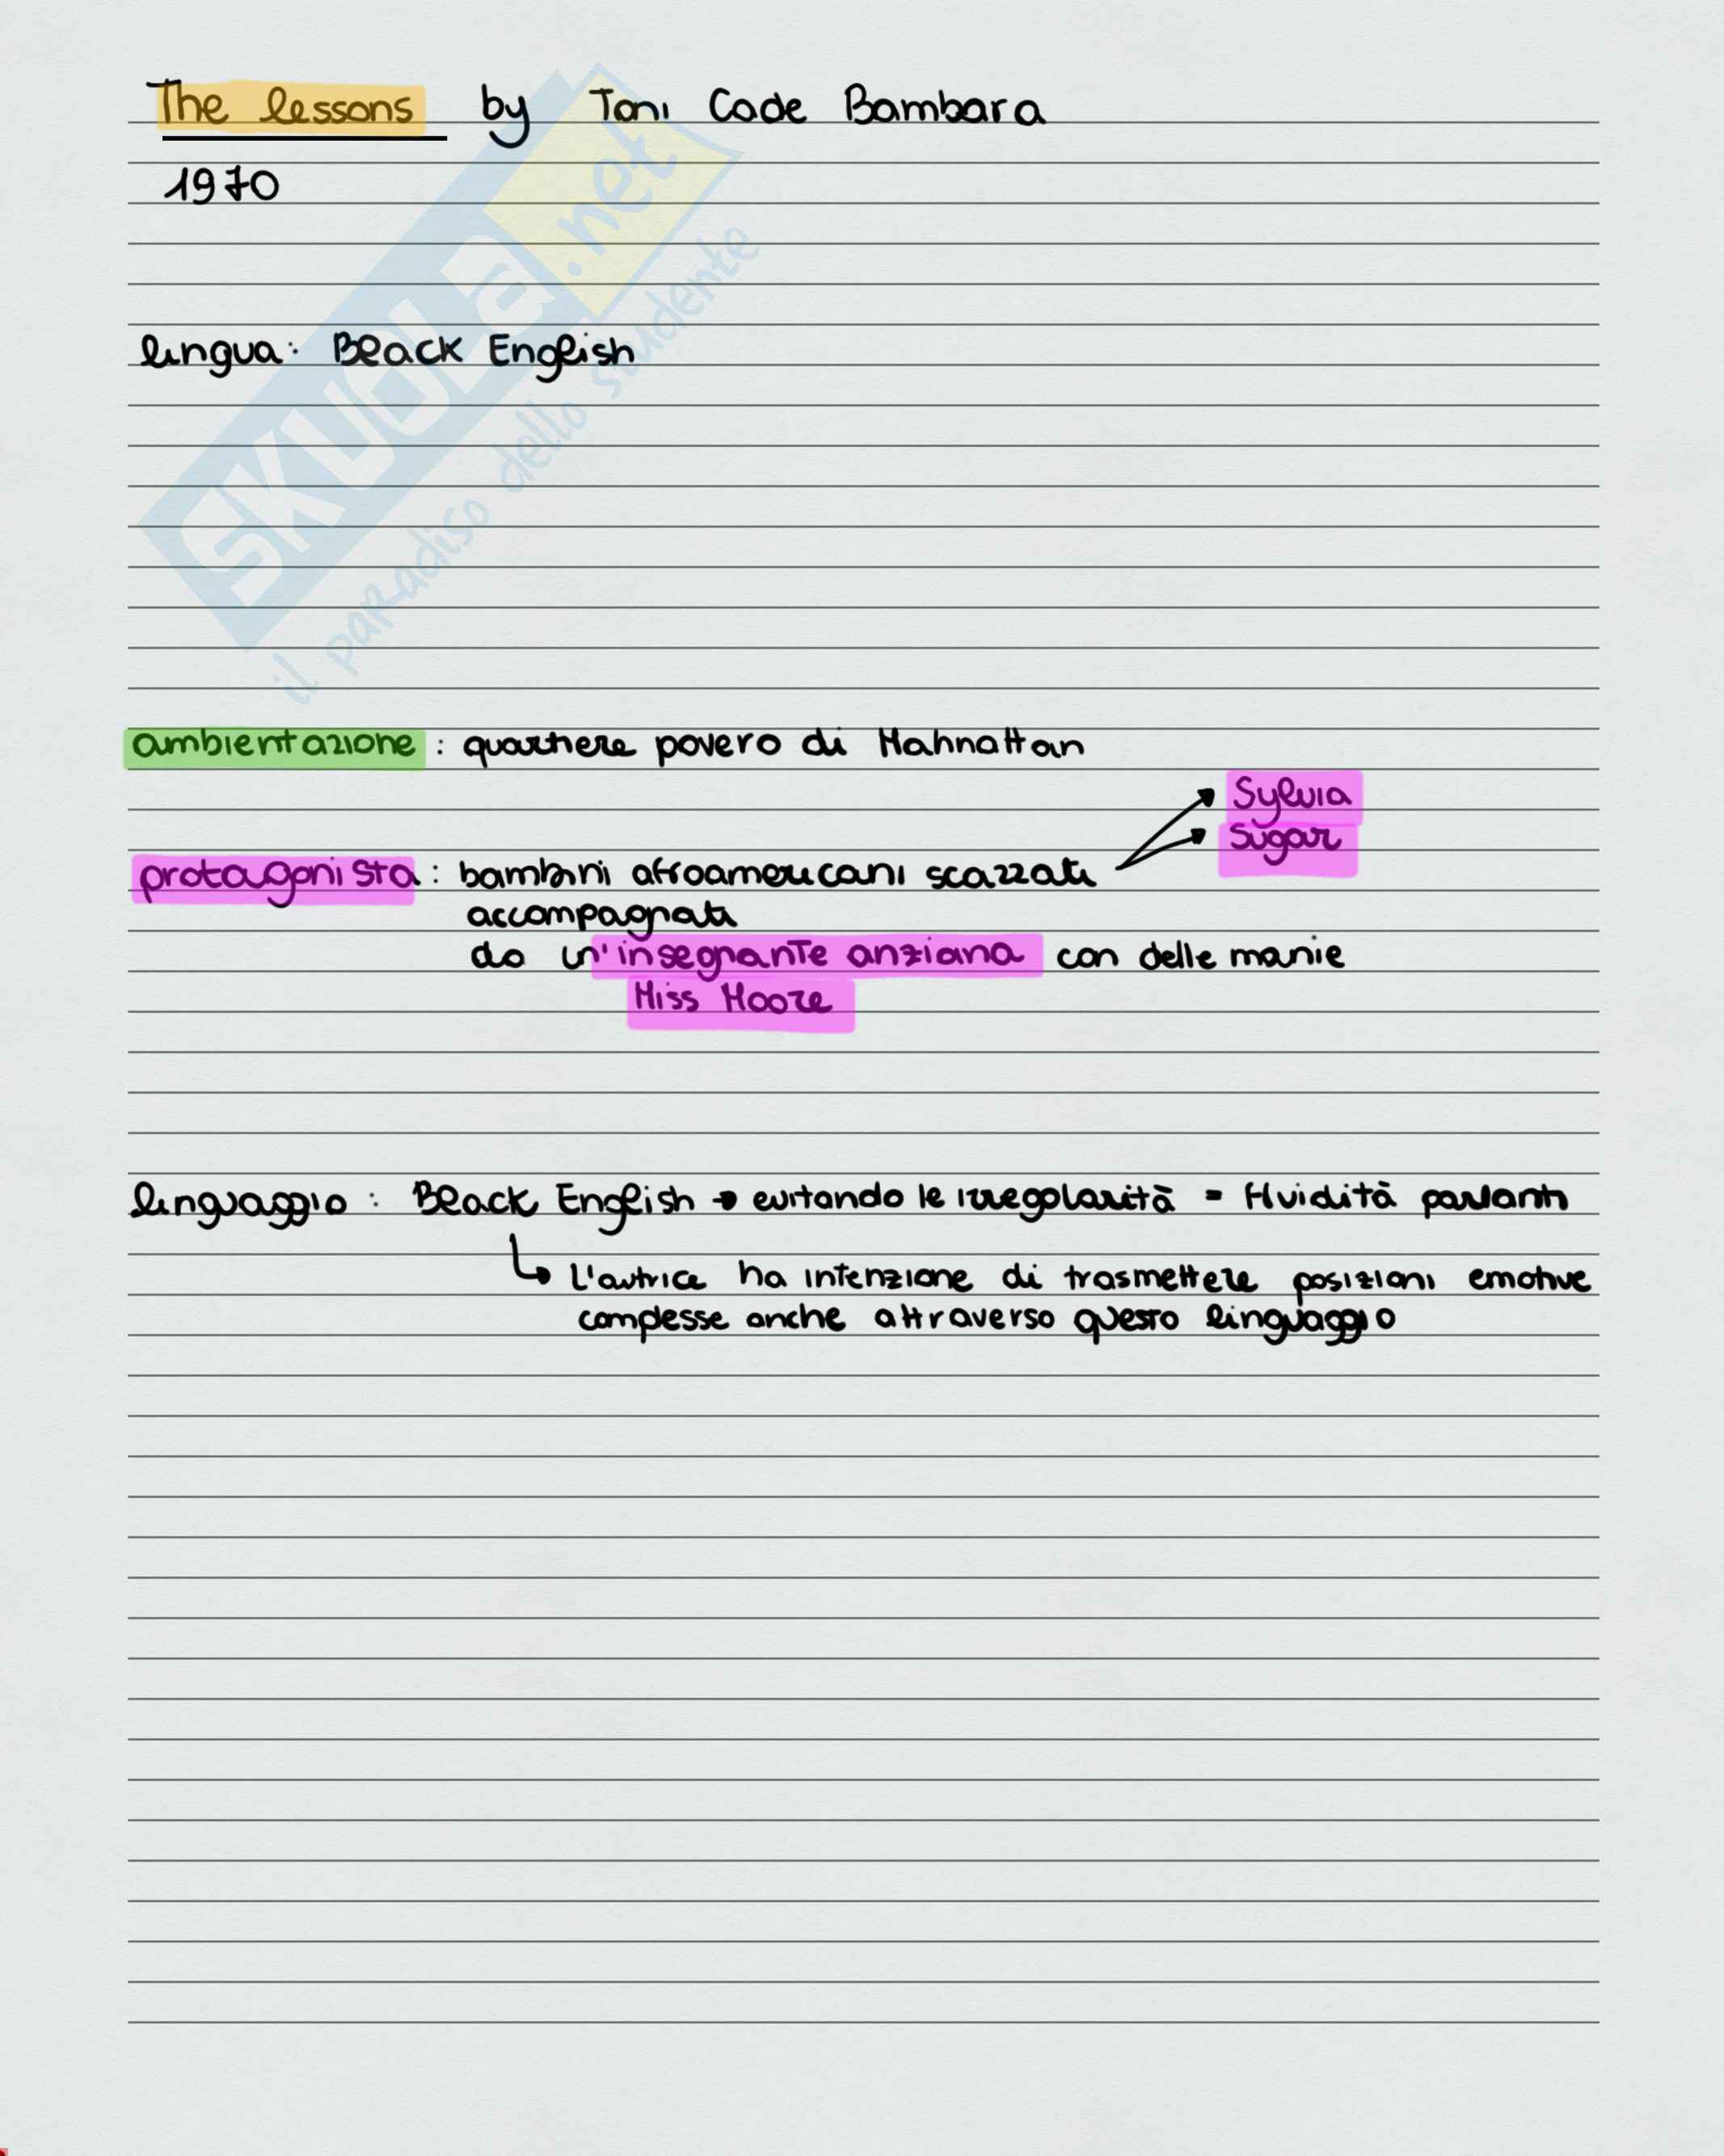 The lessons by Toni Cade Bambara
1970
SKUOLa.net
il paradiso dello studente
lingua: Black English
ambientazione : quartiere povero di Mahnattan
Sylvia
Sugar
protagonista : bambini afroamericani scazzati
accompagnati
da un'insegnante anziana con delle manie
Miss Moore
linguaggio : Black English → evitando le irregolarità = fluidità parlanti
↳ L'autrice ha intenzione di trasmettere posizioni emotive
complesse anche attraverso questo linguaggio